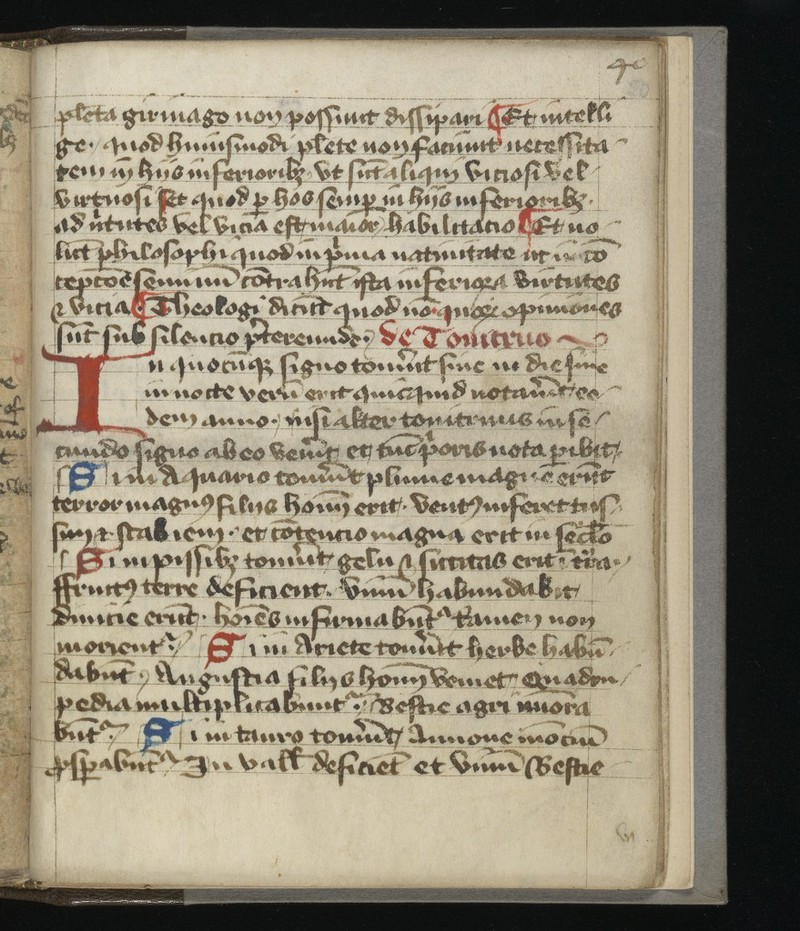 40
pleta girū mago non possunt dissipari Et intelli
ge · quod huiusmodi plete non faciunt necessita
tem in hijs inferioribꝫ vt sint aliqui viciosi vel
virtuosi set quod ꝑ hos semꝑ in hijs inferioribꝫ
ad v̓tutes vel vicia est maior habilitacio Et no
lūt philosophi quod in pͥma natiuitate ut in cō
cepcōe seminū cōtrahūt ista inferiora virtutes
⁊ vicia Theologi dicūt quod opiniones
sūt sub silencio p̄tereunde de Tonitruo
In quocūqꝫ signo tonu̓it siue in die siue
in nocte verū erit quicquid notau̓it eo
dem anno · nisi alter tonitruus in se
cundo signo ab eo ven̓it et tūc pͥoris nota ꝑibit
Si in Aquario tonu̓it pluuie magne erūt
terror magnꝰ filijs hoīm erit · ventꝰ inferet tus
sim ⁊ scabiem · et cōtencio magna erit in sec̄lo
Si in pissibꝫ tonu̓it gelu ⁊ siccitas erit ī t̓ra
ffructꝰ terre deficient · vinū habundabit
diuicie erūt · hoīes infirmabūtᷣ tamen non
morientᷣ Si in Ariete tonu̓it herbe habū
dabūt Angustia filijs hoīm veniet Quadru
pedia multiplicabuntᷣ Bestie agri
būtᷣ Si in tauro tonu̓it Annone mōciū
ꝓsꝑabūtᷣ In vall̄ deficiet et vinū Bestie